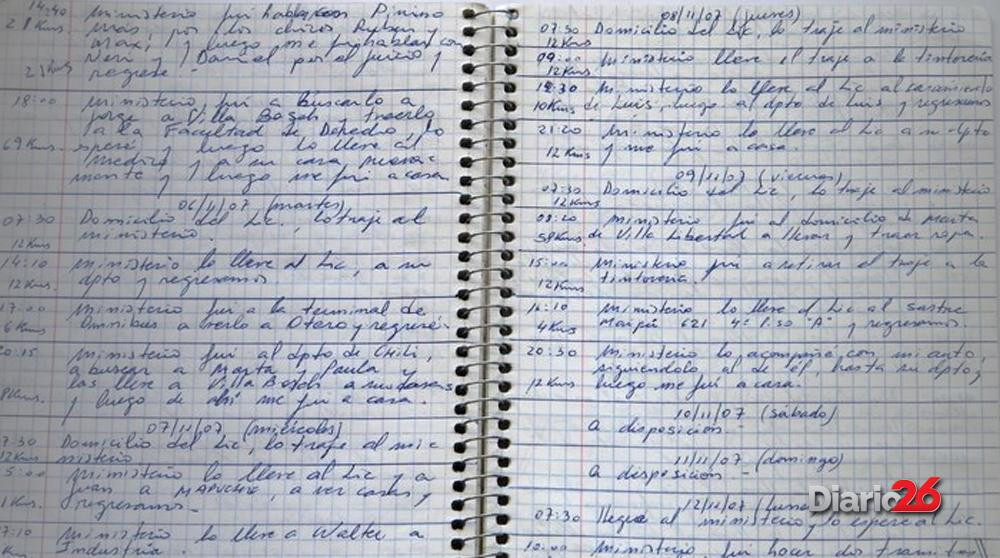 14:40 Ministerio fui hablar con Pinino
21 Kms. más, por los chicos Ruben y
Maxi, y luego me fui hablar con
Neri y Daniel por el juicio y
21 Kms regresé.-
18:00 Ministerio fui a buscarlo a
Jorge a Villa Bosch y traerlo
a la Facultad de Derecho, lo
69 Kms. esperé, y luego lo lleve al
medico y a su casa nueva-
mente y luego me fui a casa.
06/11/07 (martes)
07:30 Domicilio del Lic., lo traje al
12 Kms ministerio.
14:10 Ministerio lo lleve al Lic, a su
12 Kms. dpto y regresamos
17:00 Ministerio fui a la terminal de
6 Kms Omnibus a verlo a Otero y regresé.
20:15 Ministerio fui al dpto de Chili,
a buscar a Marta, Paula y
las lleve a Villa Bosch a sus casas
8 Kms. y luego de ahí me fui a casa.
07/11/07 (miercoles)
7:30 Domicilio del Lic, lo traje al mi
12 Kms nisterio
5:00 Ministerio lo lleve al Lic y a
Juan a MAPUCHE, a ver casas, y
1 Kms. regresamos.-
17:10 Ministerio lo lleve a Walter a
Industria.
08/11/07 (jueves)
07:30 Domicilio del Lic, lo traje al ministerio
12 Kms
09:00 Ministerio lleve el traje a la tintoreria
12 Kms.
12:30 Ministerio lo lleve al Lic al casamiento
10 Kms de Luis, luego al dpto de Luis y regresamos
21:20 Ministerio lo lleve al Lic a su dpto
12 Kms y me fui a casa.
09/11/07 (viernes)
07:30 Domicilio del Lic, lo traje al ministerio
12 Kms
09:20 Ministerio fui al domicilio de Marta
58 Kms. de Villa Libertad a llevar y traer ropa.
15:00 Ministerio fui a retirar el traje a la
12 Kms. tintoreria.
16:10 Ministerio lo lleve al Lic al sastre
4 Kms Maipú 621 4° Piso "A" y regresamos.
20:30 Ministerio lo acompañé con mi auto,
siguiendolo al de él, hasta su dpto,
12 Kms luego me fui a casa.
10/11/07 (sábado)
A disposición -
11/11/07 (domingo)
A disposición.-
12/11/07 (lunes
07:30 llegue al ministerio y lo espere al Lic.
10:00 Ministerio fui hacer dos tramites
Diario26